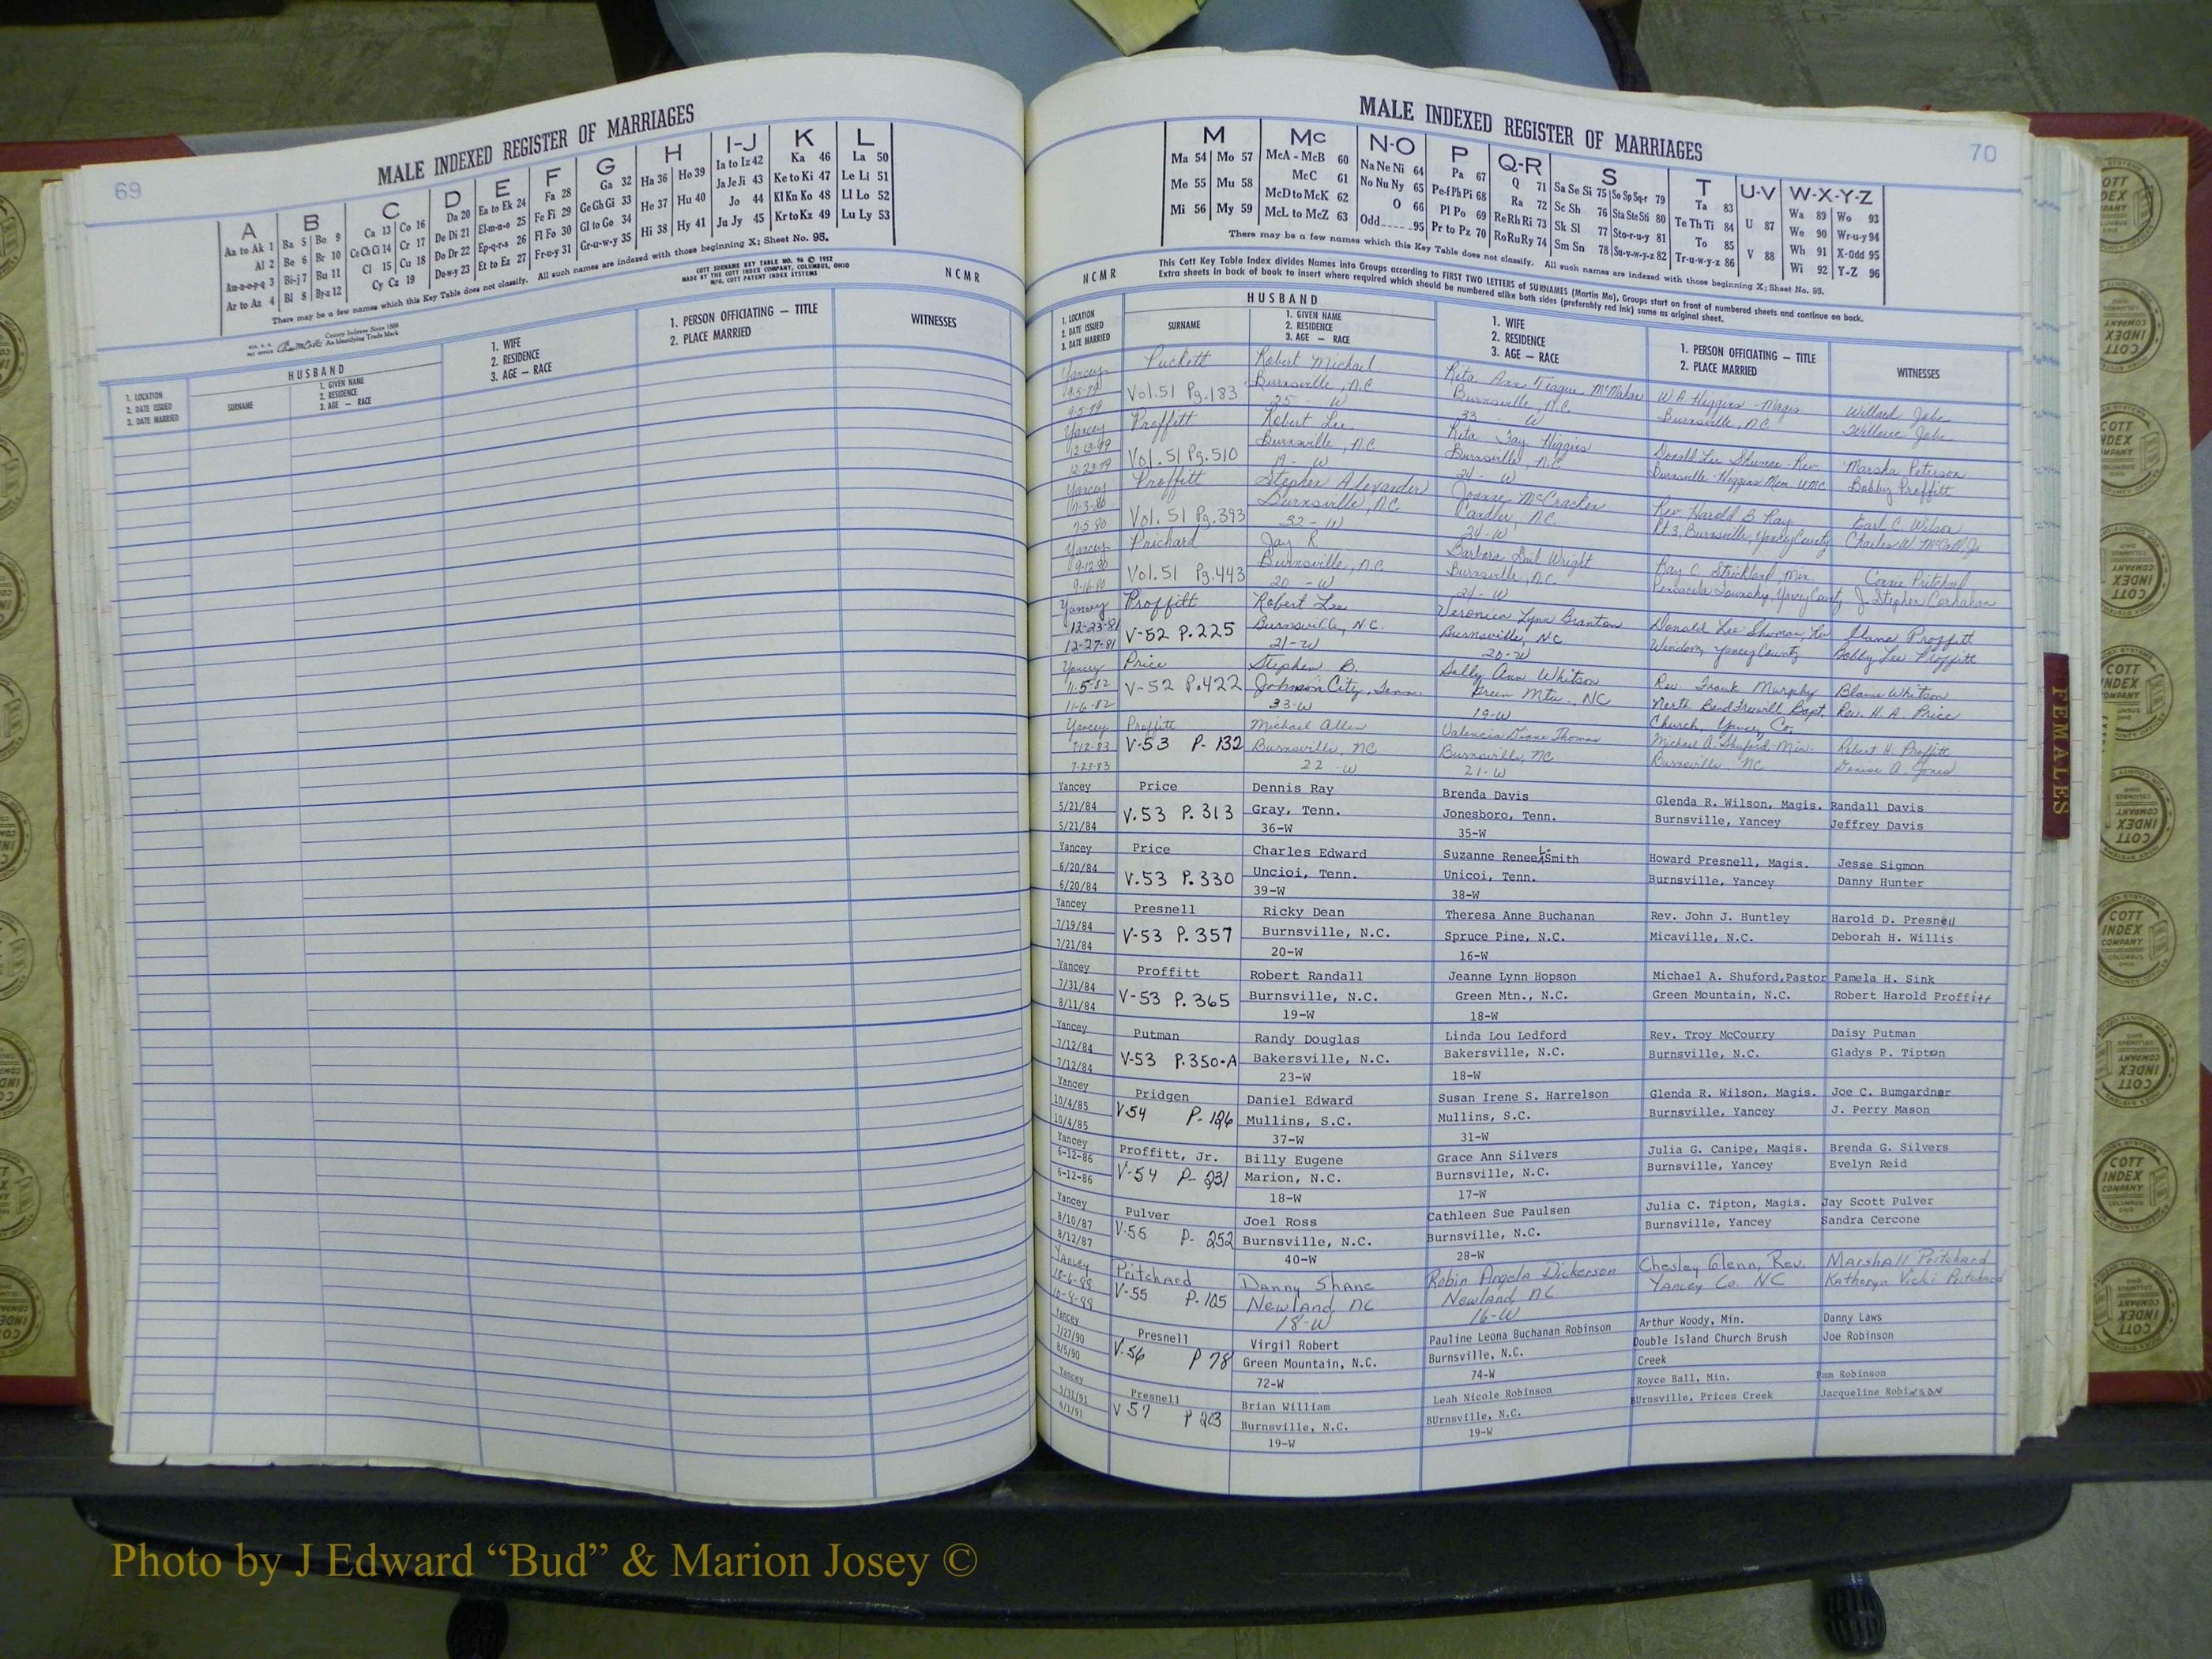 69
MALE INDEXED REGISTER OF MARRIAGES
A B C D E F G H I-J K L
Aa to Ak 1 Ba 5 Bo 9 Ca 13 Co 16 Da 20 Ea to Ek 24 Fa 28 Ga 32 Ha 36 Ho 39 Ia to Iz 42 Ka 46 La 50
Al 2 Be 6 Br 10 Ce Ch Ci 14 Cr 17 De Di 21 El-m-n-o 25 Fe Fi 29 Ge Gh Gi 33 He 37 Hu 40 Ja Je Ji 43 Ke to Ki 47 Le Li 51
Am-n-o-p-q 3 Bi-j 7 Bu 11 Cl 15 Cu 18 Do Dr 22 Ep-q-r-s 26 Fl Fo 30 Gl to Go 34 Hi 38 Hy 41 Jo 44 Kl Kn Ko 48 Ll Lo 52
Ar to Az 4 Bl 8 By-z 12 Cy Cz 19 Du-w-y 23 Et to Ez 27 Fr-u-y 31 Gr-u-w-y 35 Ju Jy 45 Kr to Kz 49 Lu Ly 53
There may be a few names which this Key Table does not classify. All such names are indexed with those beginning X; Sheet No. 95.
COTT SURNAME KEY TABLE NO. 96 © 1952
MADE BY THE COTT INDEX COMPANY, COLUMBUS, OHIO
MFG. COTT PATENT INDEX SYSTEMS
NCMR
County Indexes Since 1888
An Identifying Trade Mark
1. LOCATION
2. DATE ISSUED
3. DATE MARRIED
HUSBAND
SURNAME
1. GIVEN NAME
2. RESIDENCE
3. AGE — RACE
1. WIFE
2. RESIDENCE
3. AGE — RACE
1. PERSON OFFICIATING — TITLE
2. PLACE MARRIED
WITNESSES
MALE INDEXED REGISTER OF MARRIAGES
70
M Mc N-O P Q-R S T U-V W-X-Y-Z
Ma 54 Mo 57 McA - McB 60 Na Ne Ni 64 Pa 67 Q 71 Sa Se Si 75 So Sp Sq-r 79 Ta 83 U 87 Wa 89 Wo 93
Me 55 Mu 58 McC 61 No Nu Ny 65 Pe-f Ph Pi 68 Ra 72 Sc Sh 76 Sta Ste Sti 80 Te Th Ti 84 V 88 We 90 Wr-u-y 94
Mi 56 My 59 McD to McK 62 O 66 Pl Po 69 Re Rh Ri 73 Sk Sl 77 Sto-r-u-y 81 To 85 Wh 91 X-Odd 95
McL to McZ 63 Odd 95 Pr to Pz 70 Ro Ru Ry 74 Sm Sn 78 Su-v-w-y-z 82 Tr-u-w-y-z 86 Wi 92 Y-Z 96
There may be a few names which this Key Table does not classify. All such names are indexed with those beginning X; Sheet No. 95.
NCMR
This Cott Key Table Index divides Names into Groups according to FIRST TWO LETTERS of SURNAMES (Martin Ma), Groups start on front of numbered sheets and continue on back.
Extra sheets in back of book to insert where required which should be numbered alike both sides (preferably red ink) same as original sheet.
1. LOCATION
2. DATE ISSUED
3. DATE MARRIED
HUSBAND
SURNAME
1. GIVEN NAME
2. RESIDENCE
3. AGE — RACE
1. WIFE
2. RESIDENCE
3. AGE — RACE
1. PERSON OFFICIATING — TITLE
2. PLACE MARRIED
WITNESSES
Yancey Puckett Robert Michael Rita Anne Teague McMahan W.A. Higgins - Magis Willard
9-5-79 Vol.51 Pg.183 Burnsville, N.C. Burnsville, N.C. Burnsville, N.C.
9-5-79 25 - W 33 - W
Yancey Proffitt Robert Lee Rita Fay Higgins Donald Lee Shuman - Rev. Marsha Peterson
12-13-79 Vol.51 Pg.510 Burnsville, N.C. Burnsville, N.C. Burnsville-Higgins Mem. UMC Bobby Proffitt
12-23-79 19 - W 24 - W
Yancey Proffitt Stephen Alexander Joanne McCracken Rev. Harold B. Ray Earl C. Wilson
7-3-80 Vol.51 Pg.393 Burnsville, N.C. Candler, N.C. Rt.3, Burnsville, Yancey County Charles W. McCall Jr
7-5-80 32 - W 24-W
Yancey Prichard Jay R. Barbara Gail Wright Ray C. Strickland, Min. Pritchard
9-12-80 Vol.51 Pg.443 Burnsville, N.C. Burnsville, N.C. Pensacola Township, Yancey County J. Stephen
9-16-80 20 - W 21 - W
Yancey Proffitt Robert Lee Veronica Lynn Branton Donald Lee Shuman, Rev Proffitt
12-23-81 V-52 P.225 Burnsville, N.C. Burnsville, N.C. Windom, Yancey County Bobby Lee Proffitt
12-27-81 21-W 20-W
Yancey Price Stephen B. Sally Ann Whitson Rev. Frank Murphy Blane Whitson
11-5-82 V-52 P.422 Johnson City, Tenn. Green Mtn., NC North Bend Freewill Bapt. Rev. H.A. Price
11-6-82 33-W 19-W Church, Yancey Co.
Yancey Proffitt Michael Allen Valencia Diane Thomas Michael A. Shuford-Min. Robert H. Proffitt
7-12-83 V-53 P-132 Burnsville, NC Burnsville, NC Burnsville, NC Denise A. Jones
7-23-83 22-W 21-W
Yancey Price Dennis Ray Brenda Davis Glenda R. Wilson, Magis. Randall Davis
5/21/84 V.53 P.313 Gray, Tenn. Jonesboro, Tenn. Burnsville, Yancey Jeffrey Davis
5/21/84 36-W 35-W
Yancey Price Charles Edward Suzanne Renee L. Smith Howard Presnell, Magis. Jesse Sigmon
6/20/84 V.53 P.330 Uncioi, Tenn. Unicoi, Tenn. Burnsville, Yancey Danny Hunter
6/20/84 39-W 38-W
Yancey Presnell Ricky Dean Theresa Anne Buchanan Rev. John J. Huntley Harold D. Presnell
7/19/84 V-53 P.357 Burnsville, N.C. Spruce Pine, N.C. Micaville, N.C. Deborah H. Willis
7/21/84 20-W 16-W
Yancey Proffitt Robert Randall Jeanne Lynn Hopson Michael A. Shuford,Pastor Pamela H. Sink
7/31/84 V-53 P.365 Burnsville, N.C. Green Mtn., N.C. Green Mountain, N.C. Robert Harold Proffitt
8/11/84 19-W 18-W
Yancey Putman Randy Douglas Linda Lou Ledford Rev. Troy McCourry Daisy Putman
7/12/84 V-53 P.350-A Bakersville, N.C. Bakersville, N.C. Burnsville, N.C. Gladys P. Tipton
7/12/84 23-W 18-W
Yancey Pridgen Daniel Edward Susan Irene S. Harrelson Glenda R. Wilson, Magis. Joe C. Bumgardner
10/4/85 V-54 P-126 Mullins, S.C. Mullins, S.C. Burnsville, Yancey J. Perry Mason
10/4/85 37-W 31-W
Yancey Proffitt, Jr. Billy Eugene Grace Ann Silvers Julia G. Canipe, Magis. Brenda G. Silvers
6-12-86 V-54 P-231 Marion, N.C. Burnsville, N.C. Burnsville, Yancey Evelyn Reid
6-12-86 18-W 17-W
Yancey Pulver Joel Ross Cathleen Sue Paulsen Julia C. Tipton, Magis. Jay Scott Pulver
8/10/87 V-55 P-252 Burnsville, N.C. Burnsville, N.C. Burnsville, Yancey Sandra Cercone
8/12/87 40-W 28-W
Yancey Pritchard Danny Shane Robin Angela Dickerson Chesley Glenn, Rev. Marshall Pritchard
V-55 P-105 Newland, NC Newland NC Yancey Co. NC Katheryn Vicki Pritchard
18-W 16-W
Yancey Presnell Virgil Robert Pauline Leona Buchanan Robinson Arthur Woody, Min. Danny Laws
7/27/90 V-56 P 78 Green Mountain, N.C. Burnsville, N.C. Double Island Church Brush Joe Robinson
8/5/90 72-W 74-W Creek
Yancey Presnell Brian William Leah Nicole Robinson Royce Ball, Min. Pam Robinson
5/31/91 V 57 P 203 Burnsville, N.C. BUrnsville, N.C. BUrnsville, Prices Creek Jacqueline Robinson
6/1/91 19-W 19-W
FEMALES
COTT INDEX COMPANY
COLUMBUS OHIO
Photo by J Edward “Bud” & Marion Josey ©